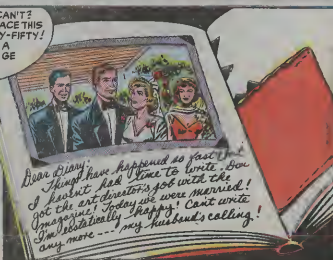 CAN'T?
ACE THIS
Y-FIFTY!
A
GE
Dear Diary;
Things have happened so fast
I haven't had time to write. Don
got the art director's job with the
magazine! Today we were married!
I'm ecstatically happy! Can't write
any more --- my husband's calling!